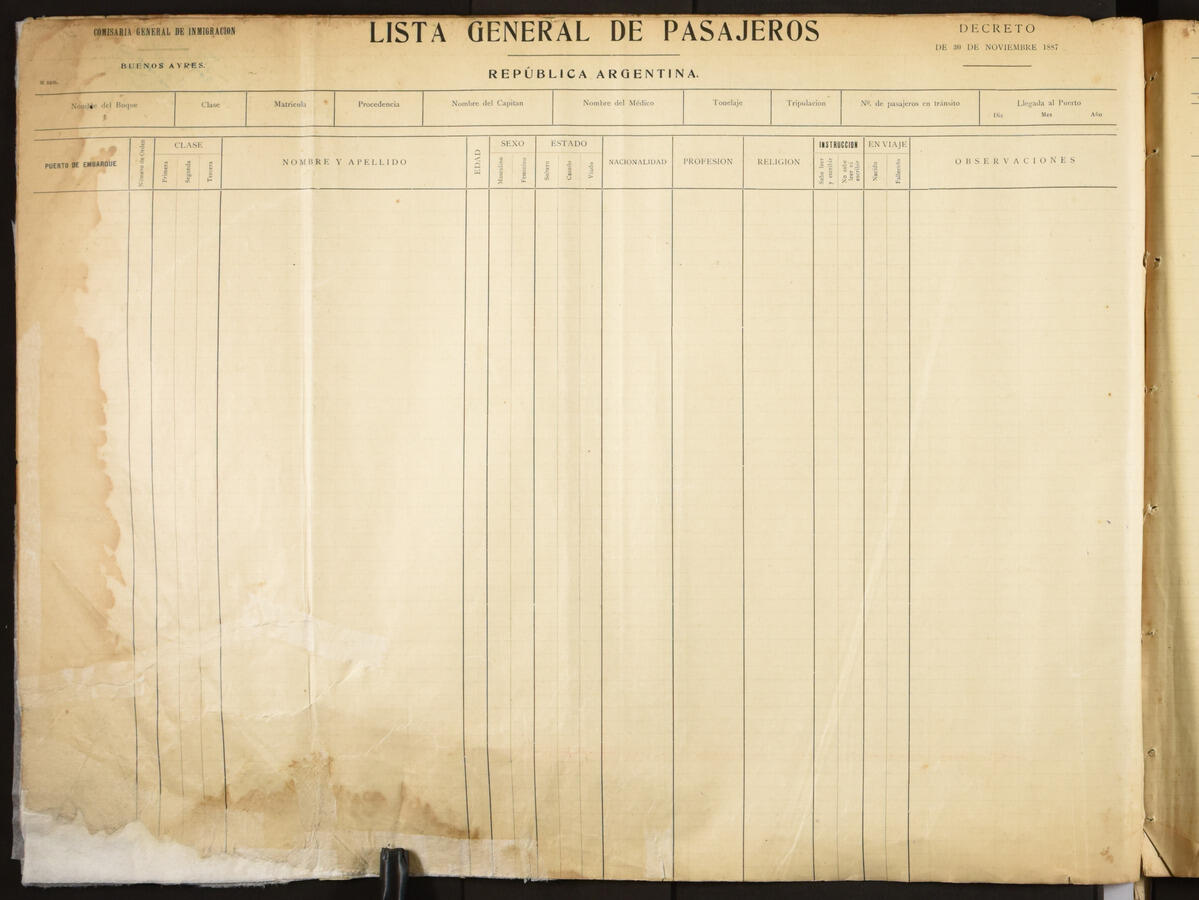 COMISARIA GENERAL DE INMIGRACION
BUENOS AYRES.
LISTA GENERAL DE PASAJEROS
REPÚBLICA ARGENTINA.
DECRETO
DE 30 DE NOVIEMBRE 1887
Nombre del Buque
Clase
Matricula
Procedencia
Nombre del Capitan
Nombre del Médico
Tonelaje
Tripulacion
Nº. de pasajeros en tránsito
Llegada al Puerto
Dia Mes Año
PUERTO DE EMBARQUE
Número de Orden
CLASE
Primera
Segunda
Tercera
NOMBRE Y APELLIDO
EDAD
SEXO
Masculino
Femenino
ESTADO
Soltero
Casado
Viudo
NACIONALIDAD
PROFESION
RELIGION
INSTRUCCION
Sabe leer
y escribir
No sabe
leer ni
escribir
EN VIAJE
Nacido
Fallecido
OBSERVACIONES